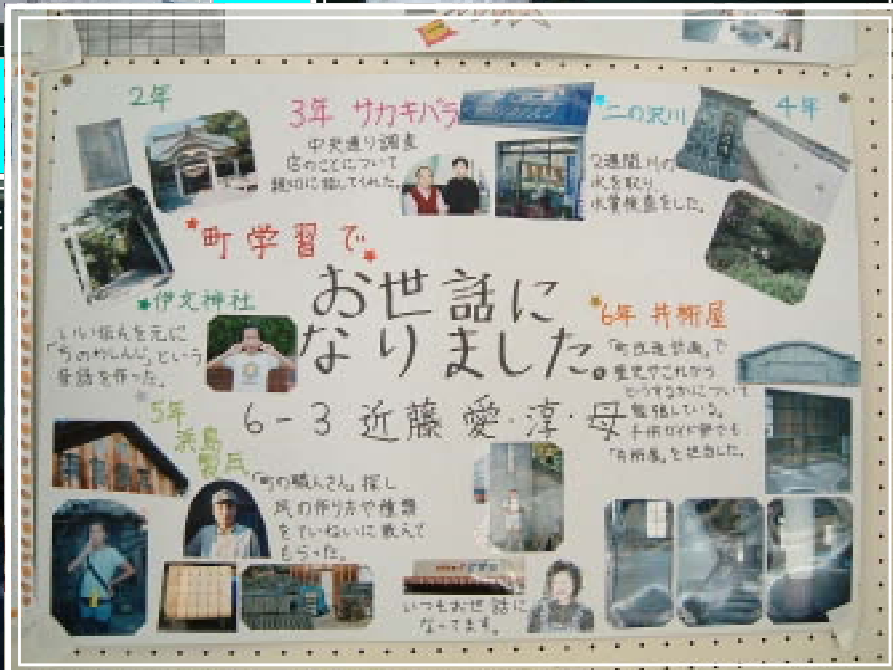 2年
3年 サカキバラ
中央通り調査
店のことについて
親切に話してくれた。
二の沢川
4年
2週間川の
水を取り、
水質検査をした。
町学習で
お世話に
なりました。
6-3 近藤 愛・淳・母
伊文神社
いい伝えを元に
という
昔話を作った。
6年 井桁屋
「町改造計画」で
歴史やこれから
どうするかについて
勉強している。
「井桁屋」を担当した。
5年
浜島
「町の職人さん」探し
瓦の作り方や種類
をていねいに教えて
もらった。
いつもお世話に
なってます。